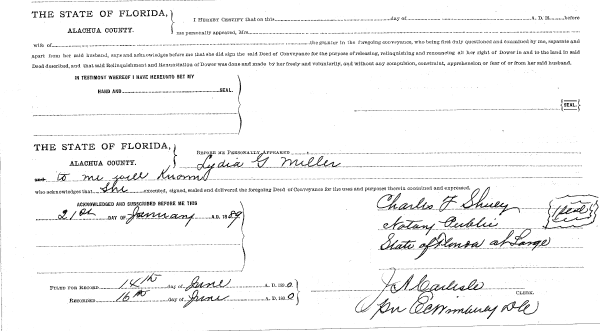 THE STATE OF FLORIDA,
ALACHUA COUNTY.
I HEREBY CERTIFY that on this day of A. D. 18 before
me personally appeared, Mrs.
wife of the grantor in the foregoing conveyance, who being first duly questioned and examined by me, separate and
apart from her said husband, says and acknowledges before me that she did sign the said Deed of Conveyance for the purpose of releasing, relinquishing and renouncing all her right of Dower in and to the land in said
Deed described, and that said Relinquishment and Renunciation of Dower was done and made by her freely and voluntarily, and without any compulsion, constraint, apprehension or fear of or from her said husband.
IN TESTIMONY WHEREOF I HAVE HEREUNTO SET MY
HAND AND SEAL.
SEAL
THE STATE OF FLORIDA,
ALACHUA COUNTY.
BEFORE ME PERSONALLY APPEARED
Lydia G Miller
to me well known
who acknowledges that She executed, signed, sealed and delivered the foregoing Deed of Conveyance for the uses and purposes therein contained and expressed.
ACKNOWLEDGED AND SUBSCRIBED BEFORE ME THIS
21st DAY OF January A.D. 1889
Charles F Shuey
Notary Public
State of Florida at Large
Seal
FILED FOR RECORD 14th day of June A. D. 1890
RECORDED 16th day of June A. D. 1890
J A Carlisle
CLERK.
Per